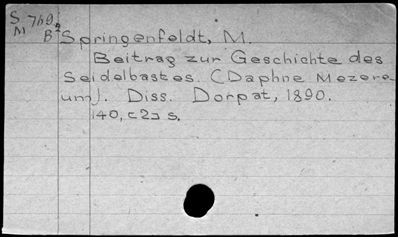 S 769,
M B² Springenfeldt, M.
Beitrag zur Geschichte des
Seidelbastes. (Daphne Mezere-
um). Diss. Dorpat, 1890.
140, c2ɔ s.